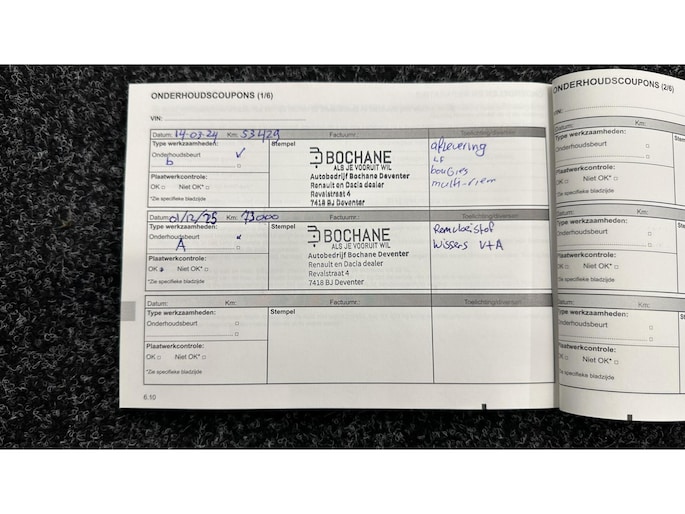 ONDERHOUDSCOUPONS (1/6)
VIN:
Datum: 14-03-24 Km: 53429 Factuurnr.: Toelichting/diversen
Type werkzaamheden: Stempel
Onderhoudsbeurt
b
Plaatwerkcontrole:
OK Niet OK*
*Zie specifieke bladzijde
BOCHANE
ALS JE VOORUIT WIL
Autobedrijf Bochane Deventer
Renault en Dacia dealer
Revalstraat 4
7418 BJ Deventer
aflevering
LF
bougies
multi-riem
Datum: 01/12/25 Km: 73000 Factuurnr.: Toelichting/diversen
Type werkzaamheden: Stempel
Onderhoudsbeurt
A
Plaatwerkcontrole:
OK Niet OK*
*Zie specifieke bladzijde
BOCHANE
ALS JE VOORUIT WIL
Autobedrijf Bochane Deventer
Renault en Dacia dealer
Revalstraat 4
7418 BJ Deventer
Remvloeistof
Wissers V+A
Datum: Km: Factuurnr.: Toelichting/diversen
Type werkzaamheden: Stempel
Onderhoudsbeurt
Plaatwerkcontrole:
OK Niet OK*
*Zie specifieke bladzijde
6.10
ONDERHOUDSCOUPONS (2/6)
VIN:
Datum: Km:
Type werkzaamheden:
Onderhoudsbeurt
Plaatwerkcontrole:
OK Niet OK*
*Zie specifieke bladzijde
Datum: Km:
Type werkzaamheden:
Onderhoudsbeurt
Plaatwerkcontrole:
OK Niet OK*
*Zie specifieke bladzijde
Datum: Km:
Type werkzaamheden:
Onderhoudsbeurt
Plaatwerkcontrole:
OK Niet OK*
*Zie specifieke bladzijde